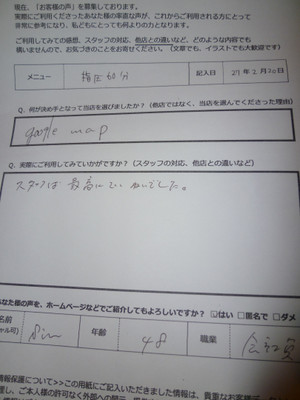 現在、「お客様の声」を募集しております。
実際にご利用くださったあなた様の率直な声が、これからご利用される方にとって
非常に参考になり、私どもにとっても何よりの力となります。
ご利用してみての感想、スタッフの対応、他店との違いなど、どのような内容でも
構いませんので、お気づきのことをお寄せください。（文章でも、イラストでも大歓迎です）
メニュー 指圧60分 記入日 27年2月20日
Q. 何が決め手となって当店を選びましたか？（他店ではなく、当店を選んでくださった理由）
google map
Q. 実際にご利用してみていかがですか？（スタッフの対応、他店との違いなど）
スタッフは最高にていねいでした。
あなた様の声を、ホームページなどでご紹介してもよろしいですか？ はい 匿名で ダメ
名前 年齢 48 職業 会社員
情報保護について>>この用紙にご記入いただきました情報は、貴重なお客様
管理し、ご本人様の許可なく外部への開示